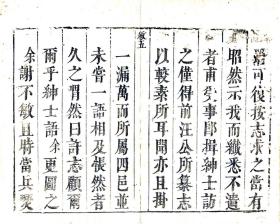 可復按志求之當有
昭然示我而纖悉不遺
者甫受事即揖紳士訪
之僅得前汪公所纂志
以較素所耳聞亦且掛
五
一漏萬而所屬四邑並
未嘗一語相及悵然者
久之喟然曰許志顧爾
爾乎紳士語余更圖之
余謝不敏且時當兵燹